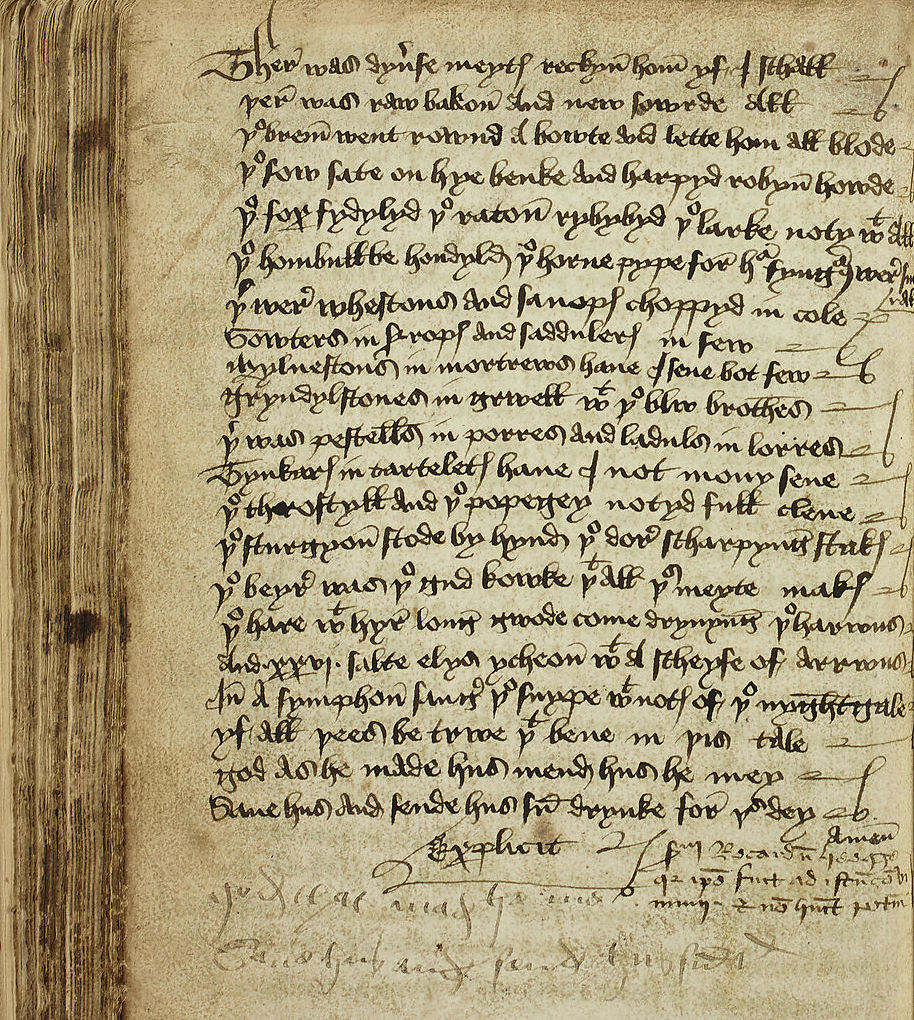 Ther was dyuse meyts reckyn hom yf I schall
þer was raw bakon and new sowrde all
þe brem went rownd a bowte and lette hom all blode
þe sow sate on hye benke and harpyd robyn howde
þe fox fydylyd þe raton rybybyd þe larke noty wt all
þe hombull be hondyld þe horne pype for hr fyngrs wer
þr wer whestons and sanops choppyd in cole
Sowters in sirops and saddulers in sew
mylnestons in mortrews haue I sene bot few
gryndylstones in grwell wt þe blw brothes
þr was pestells in porres and laduls in lorres
Tynkars in tartelets haue I not mony sene
þe throstyll and þe popegey notyd full clene
þe sturgyon stode by hynd þe dor scharpyng staks
þe beyr was þe gud kowke þt all þis meyte maks
þe hare wt hyr long gwode come dryuyng þe harwus
and xxvi salte elys ycheon wt a scheyfe of arrwus
In A symphon sang þe snype wt nots of þe nyghtgale
yf all þees be trwe þt bene in þis tale
god as he made hus mend hus he mey
Saue hus and sende hus su drynke for þis dey
Amen
Explicit
god as he mad hus
Saue hus and sende hus